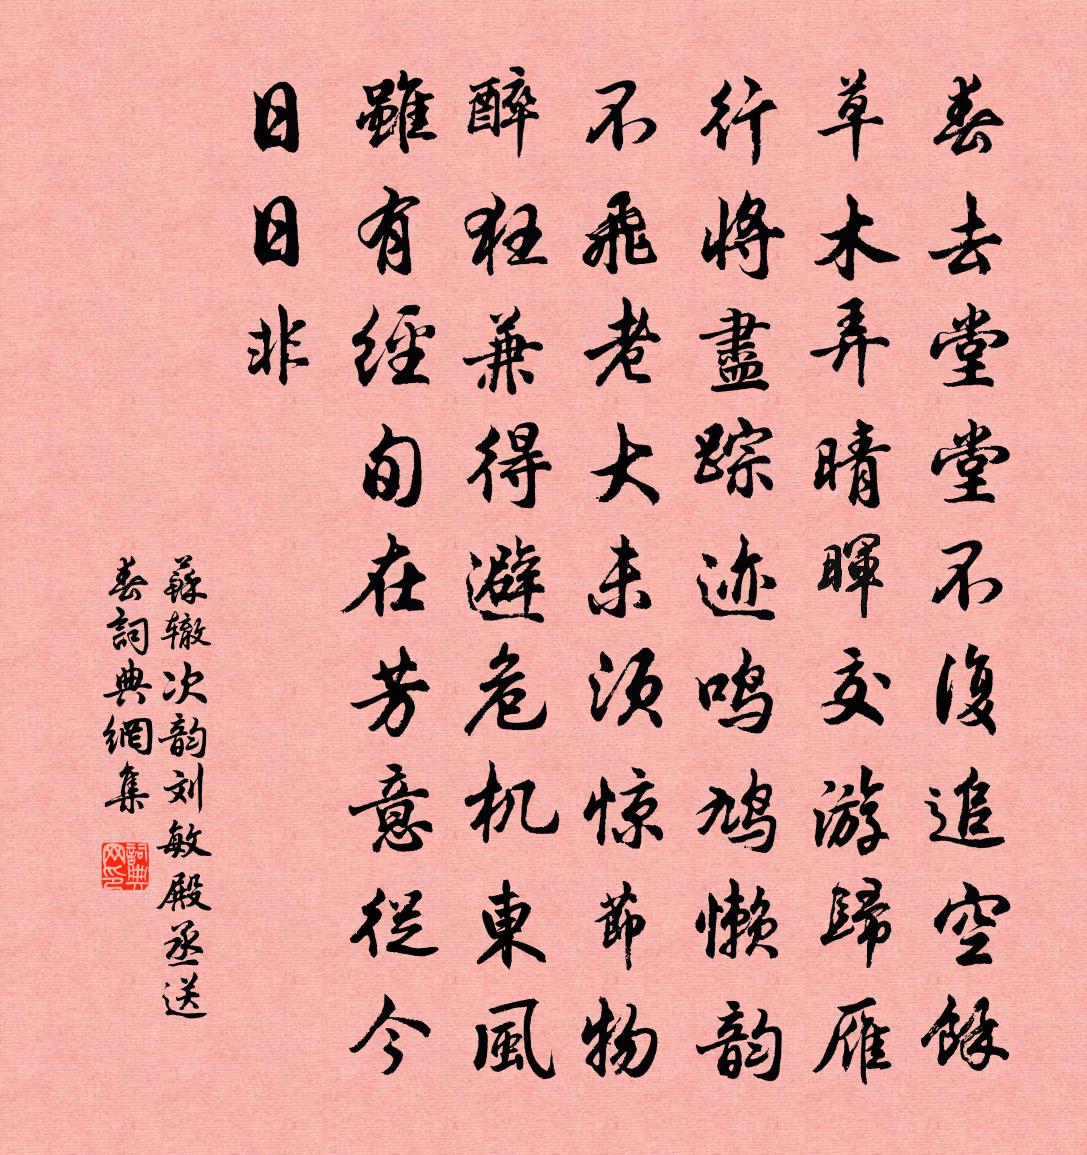 春去堂堂不復追空餘
草木弄晴暉交游歸雁
行將盡踪迹鸣鸠懒韵
不飛老大未须惊節物
醉狂兼得避危机東風
雖有經旬在芳意從今
日日非
蘇辙次韵刘敏殿丞送
春詞典網集
詞典网印